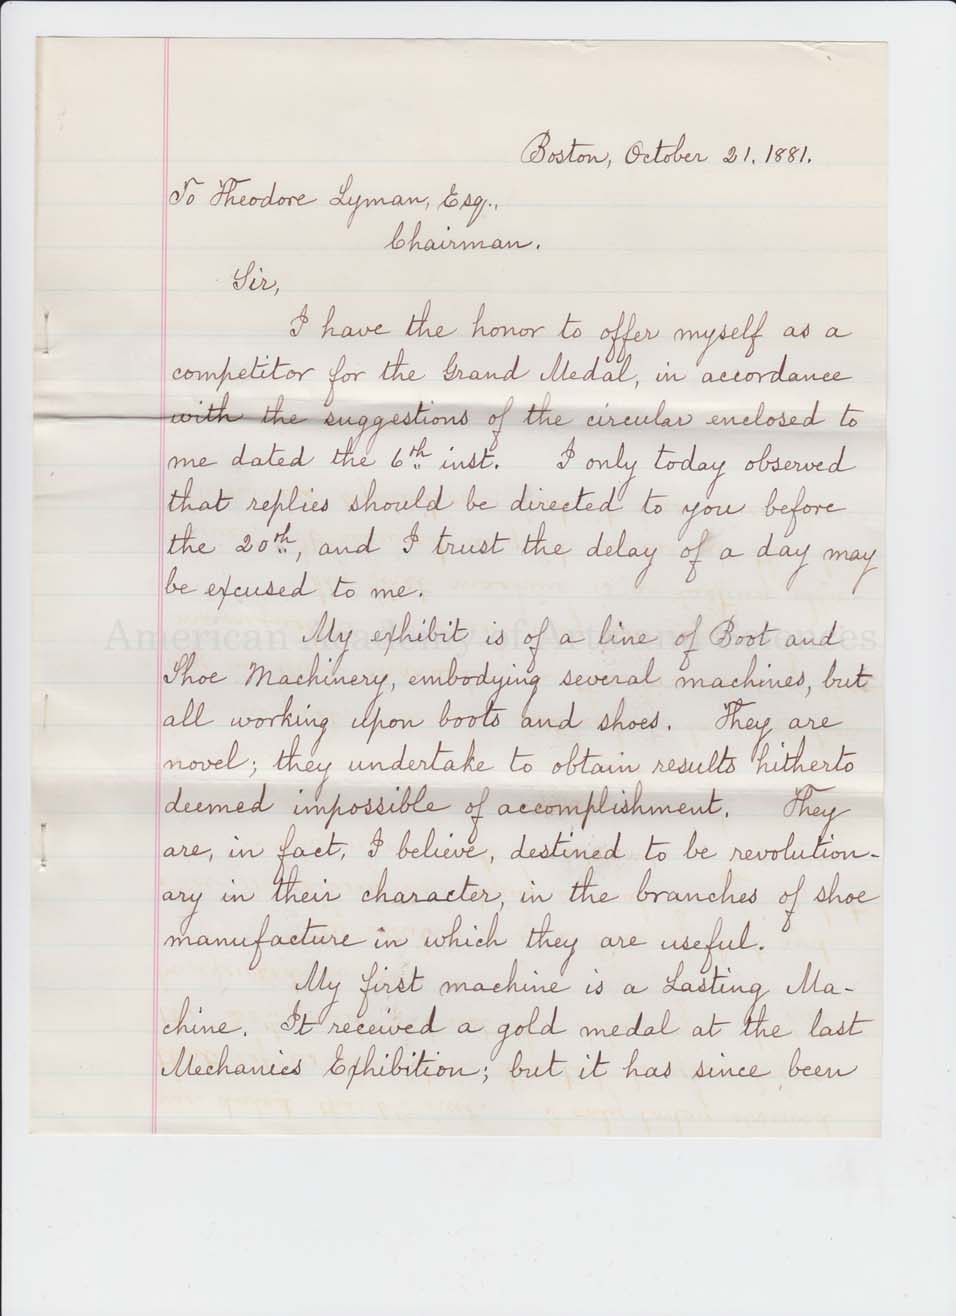 Boston, October 21. 1881.
To Theodore Lyman, Esq.,
Chairman.
Sir,
I have the honor to offer myself as a
competitor for the Grand Medal, in accordance
with the suggestions of the circular enclosed to
me dated the 6th inst. I only today observed
that replies should be directed to you before
the 20th, and I trust the delay of a day may
be excused to me.
American Academy of Arts and Sciences
My exhibit is of a line of Boot and
Shoe Machinery, embodying several machines, but
all working upon boots and shoes. They are
novel; they undertake to obtain results hitherto
deemed impossible of accomplishment. They
are, in fact, I believe, destined to be revolution-
ary in their character, in the branches of shoe
manufacture in which they are useful.
My first machine is a Lasting Ma-
chine. It received a gold medal at the last
Mechanics Exhibition; but it has since been